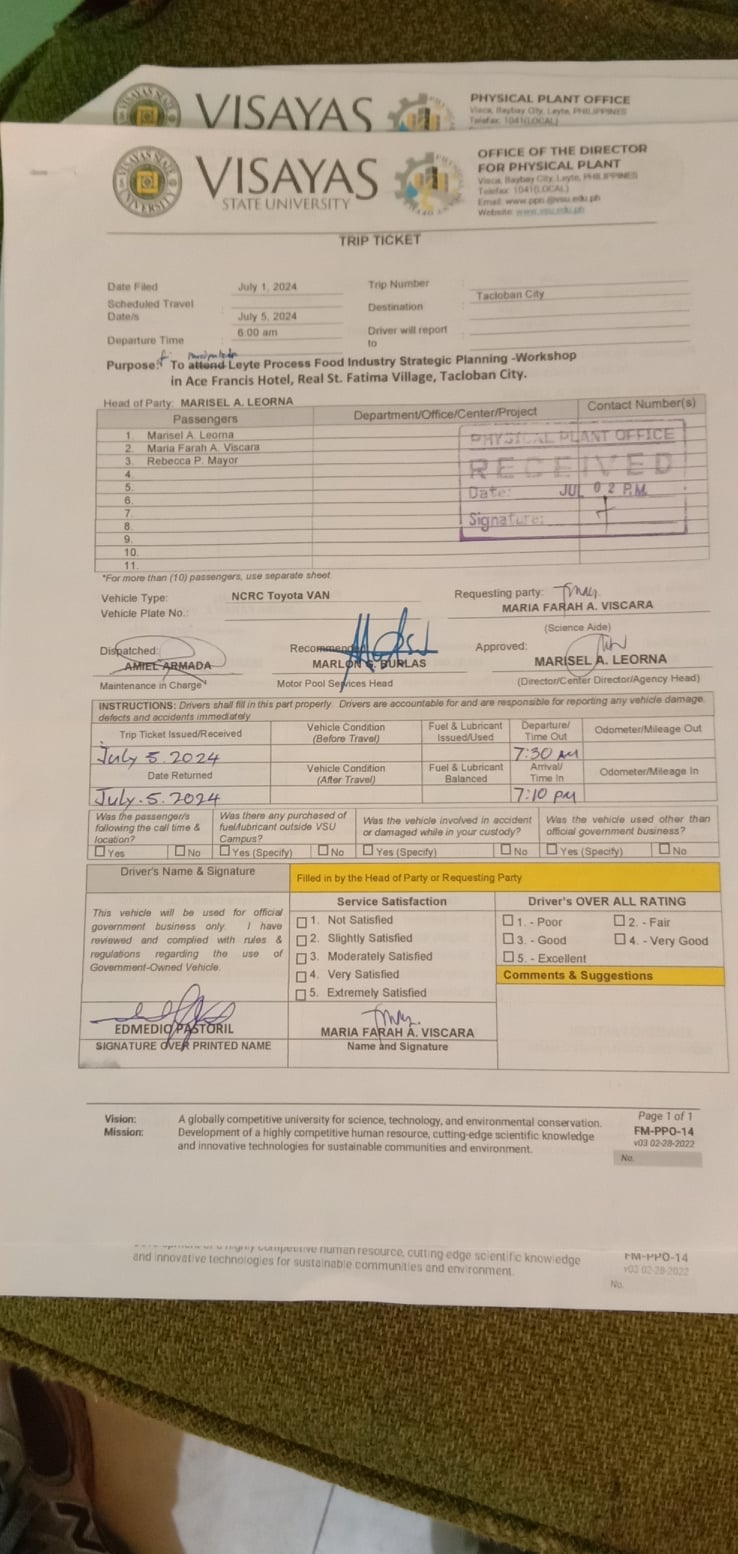 VISAYAS
PHYSICAL PLANT OFFICE
Visca, Baybay City, Leyte, PHILIPPINES
Telefax: 1041(LOCAL)
VISAYAS
STATE UNIVERSITY
OFFICE OF THE DIRECTOR
FOR PHYSICAL PLANT
Visca, Baybay City, Leyte, PHILIPPINES
Telefax: 1041(LOCAL)
Website: www.vsu.edu.ph
TRIP TICKET
Date Filed July 1, 2024 Trip Number
Scheduled Travel Date/s July 5, 2024 Destination Tacloban City
Departure Time 6:00 am Driver will report to
Purpose: To attend Leyte Process Food Industry Strategic Planning -Workshop
in Ace Francis Hotel, Real St. Fatima Village, Tacloban City.
Head of Party: MARISEL A. LEORNA
Passengers Department/Office/Center/Project Contact Number(s)
1. Marisel A. Leorna
2. Maria Farah A. Viscara
3. Rebecca P. Mayor
4.
5.
6.
7.
8.
9.
10.
11.
PHYSICAL PLANT OFFICE
RECEIVED
Date: JUL 02 P.M.
Signature:
*For more than (10) passengers, use separate sheet.
Vehicle Type: NCRC Toyota VAN Requesting party:
Vehicle Plate No.: MARIA FARAH A. VISCARA
(Science Aide)
Dispatched: Recommended Approved:
AMIEL ARMADA MARLON G. BURLAS MARISEL A. LEORNA
Maintenance in Charge Motor Pool Services Head (Director/Center Director/Agency Head)
INSTRUCTIONS: Drivers shall fill in this part properly. Drivers are accountable for and are responsible for reporting any vehicle damage,
defects and accidents immediately
Trip Ticket Issued/Received Vehicle Condition (Before Travel) Fuel & Lubricant Issued/Used Departure/ Time Out Odometer/Mileage Out
July 5, 2024 7:30 AM
Date Returned Vehicle Condition (After Travel) Fuel & Lubricant Balanced Arrival/ Time In Odometer/Mileage In
July. 5. 2024 7:10 pm
Was the passenger/s following the call time & location? Was there any purchased of fuel/lubricant outside VSU Campus? Was the vehicle involved in accident or damaged while in your custody? Was the vehicle used other than official government business?
Yes No Yes (Specify) No Yes (Specify) No Yes (Specify) No
Driver's Name & Signature Filled in by the Head of Party or Requesting Party
Service Satisfaction Driver's OVER ALL RATING
This vehicle will be used for official
government business only. I have
reviewed and complied with rules &
regulations regarding the use of
Government-Owned Vehicle.
1. Not Satisfied
2. Slightly Satisfied
3. Moderately Satisfied
4. Very Satisfied
5. Extremely Satisfied
1. - Poor 2. - Fair
3. - Good 4. - Very Good
5. - Excellent
Comments & Suggestions
EDMEDIO PASTORIL MARIA FARAH A. VISCARA
SIGNATURE OVER PRINTED NAME Name and Signature
Vision: A globally competitive university for science, technology, and environmental conservation.
Mission: Development of a highly competitive human resource, cutting-edge scientific knowledge
and innovative technologies for sustainable communities and environment.
Page 1 of 1
FM-PPO-14
v03 02-28-2022
No.
highly competitive human resource, cutting edge scientific knowledge
and innovative technologies for sustainable communities and environment.
FM-PPO-14
v03 02-28-2022
No.